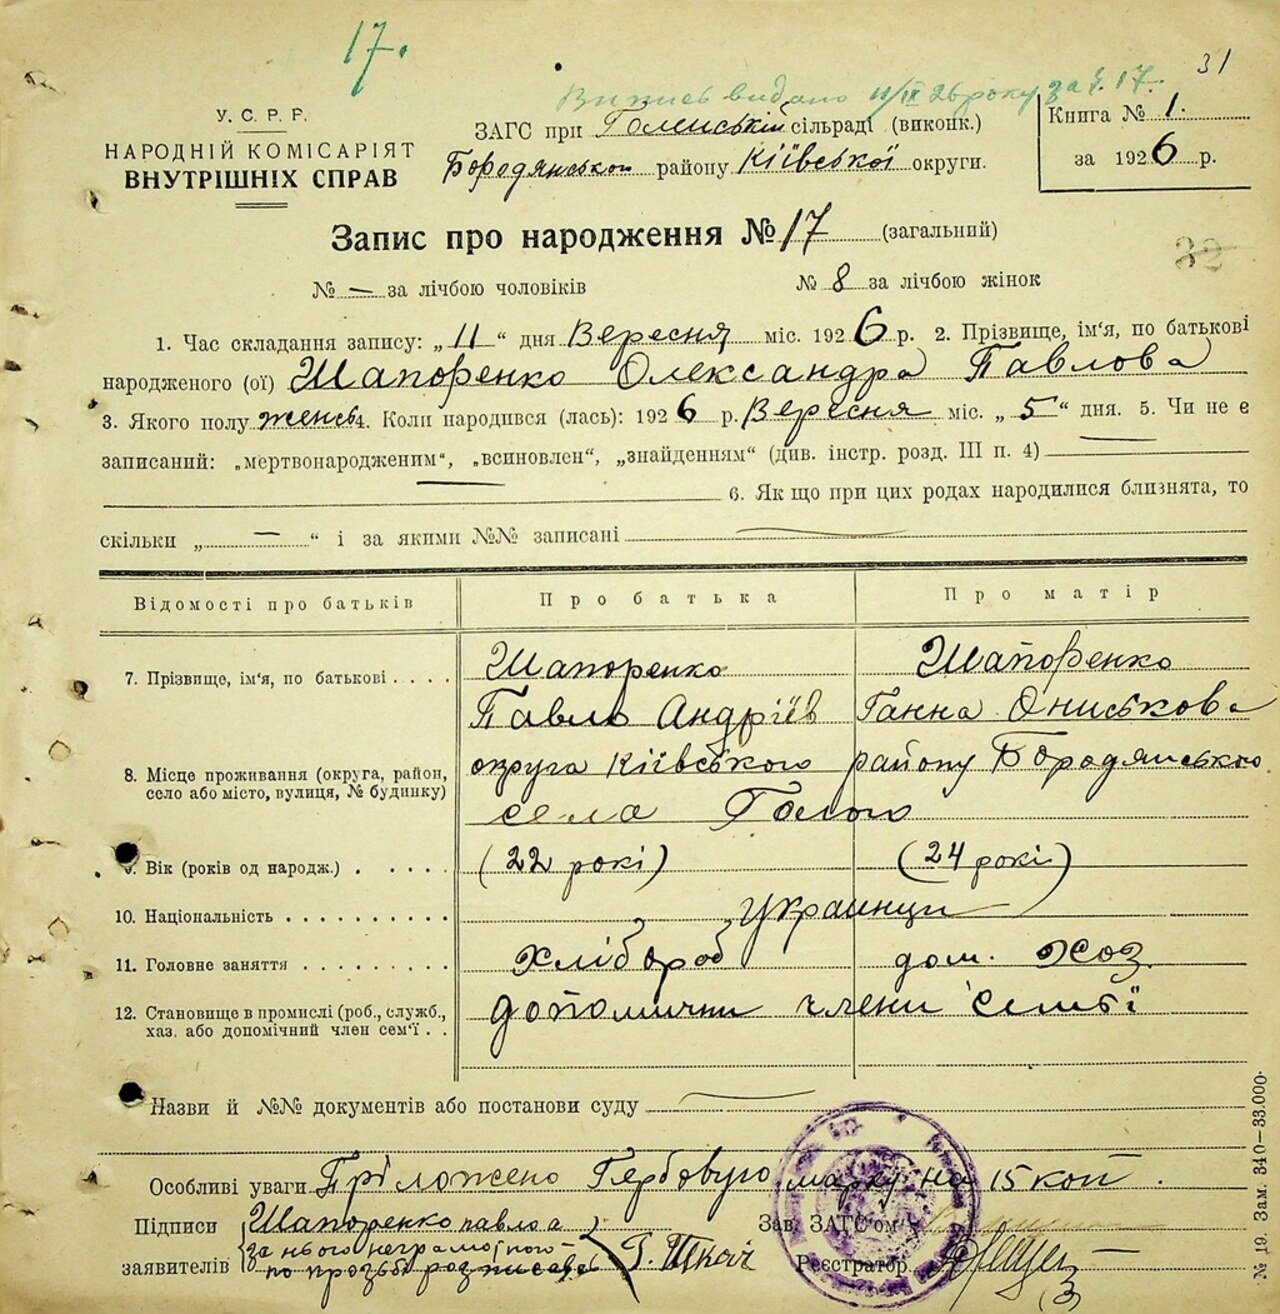 17.
31
Витись видано 11/IX 26 року за №. 17.
У. С. Р. Р.
НАРОДНІЙ КОМІСАРІЯТ
ВНУТРІШНІХ СПРАВ
ЗАГС при Голенській сільраді (виконк.)
Бородянського району Кіївської округи.
Книга № 1.
за 1926 р.
Запис про народження № 17 (загальний)
32
№ — за лічбою чоловіків № 8 за лічбою жінок
1. Час складання запису: „11“ дня Вересня міс. 1926 р. 2. Прізвище, ім'я, по батькові
народженого (ої) Шапоренко Олександра Павлова
3. Якого полу женсь 4. Коли народився (лась): 1926 р. Вересня міс. „5“ дня. 5. Чи не є
записаний: „мертвонародженим“, „всиновлен“, „знайденням“ (див. інстр. розд. III п. 4)
6. Як що при цих родах народилися близнята, то
скільки „ — “ і за якими №№ записані
Відомості про батьків Про батька Про матір
7. Прізвище, ім'я, по батькові
Шапоренко Шапоренко
Павло Андріїв Ганна Ониськова
8. Місце проживання (округа, район,
село або місто, вулиця, № будинку)
округа Кіївського району Бородянського
села
9. Вік (років од народж.) (22 рокі) (24 рокі)
10. Національність Украинци
11. Головне заняття Хлібороб дом. Хоз.
12. Становище в промислі (роб., служб.,
хаз. або допомічний член сем'ї
допомични члени семьї
Назви й №№ документів або постанови суду
Особливі уваги Пріложено Гербовую марку на 15 коп.
Підписи
заявителів
Шапоренко Павло а
за нього неграмотного
по прозьбі розписавсь Г. Ткач
Зав. ЗАГС'ом
Реєстратор
№ 19. Зам. 340—33.000.